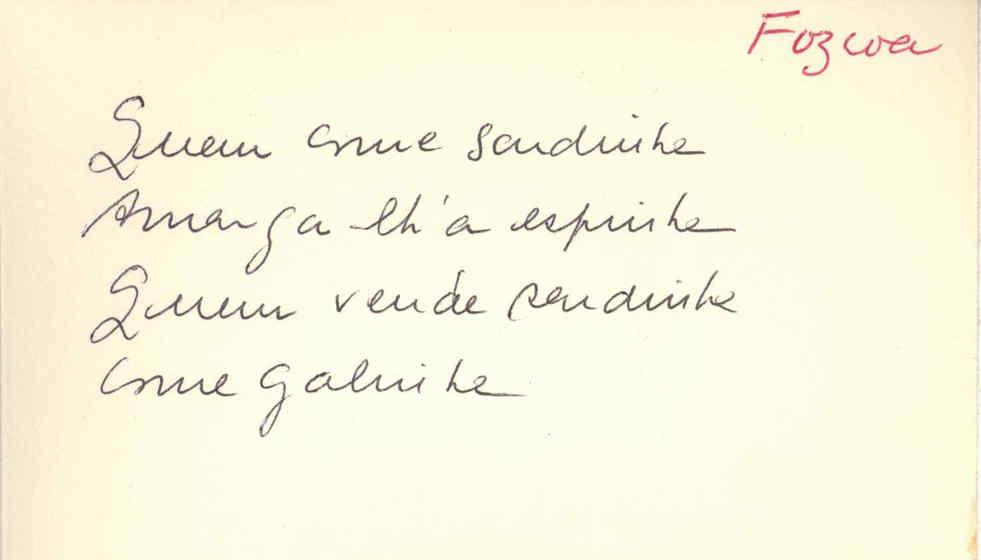 Fozcoa
Quem come sardinha
Amarga lh'a espinha
Quem vende sardinha
Come galinha